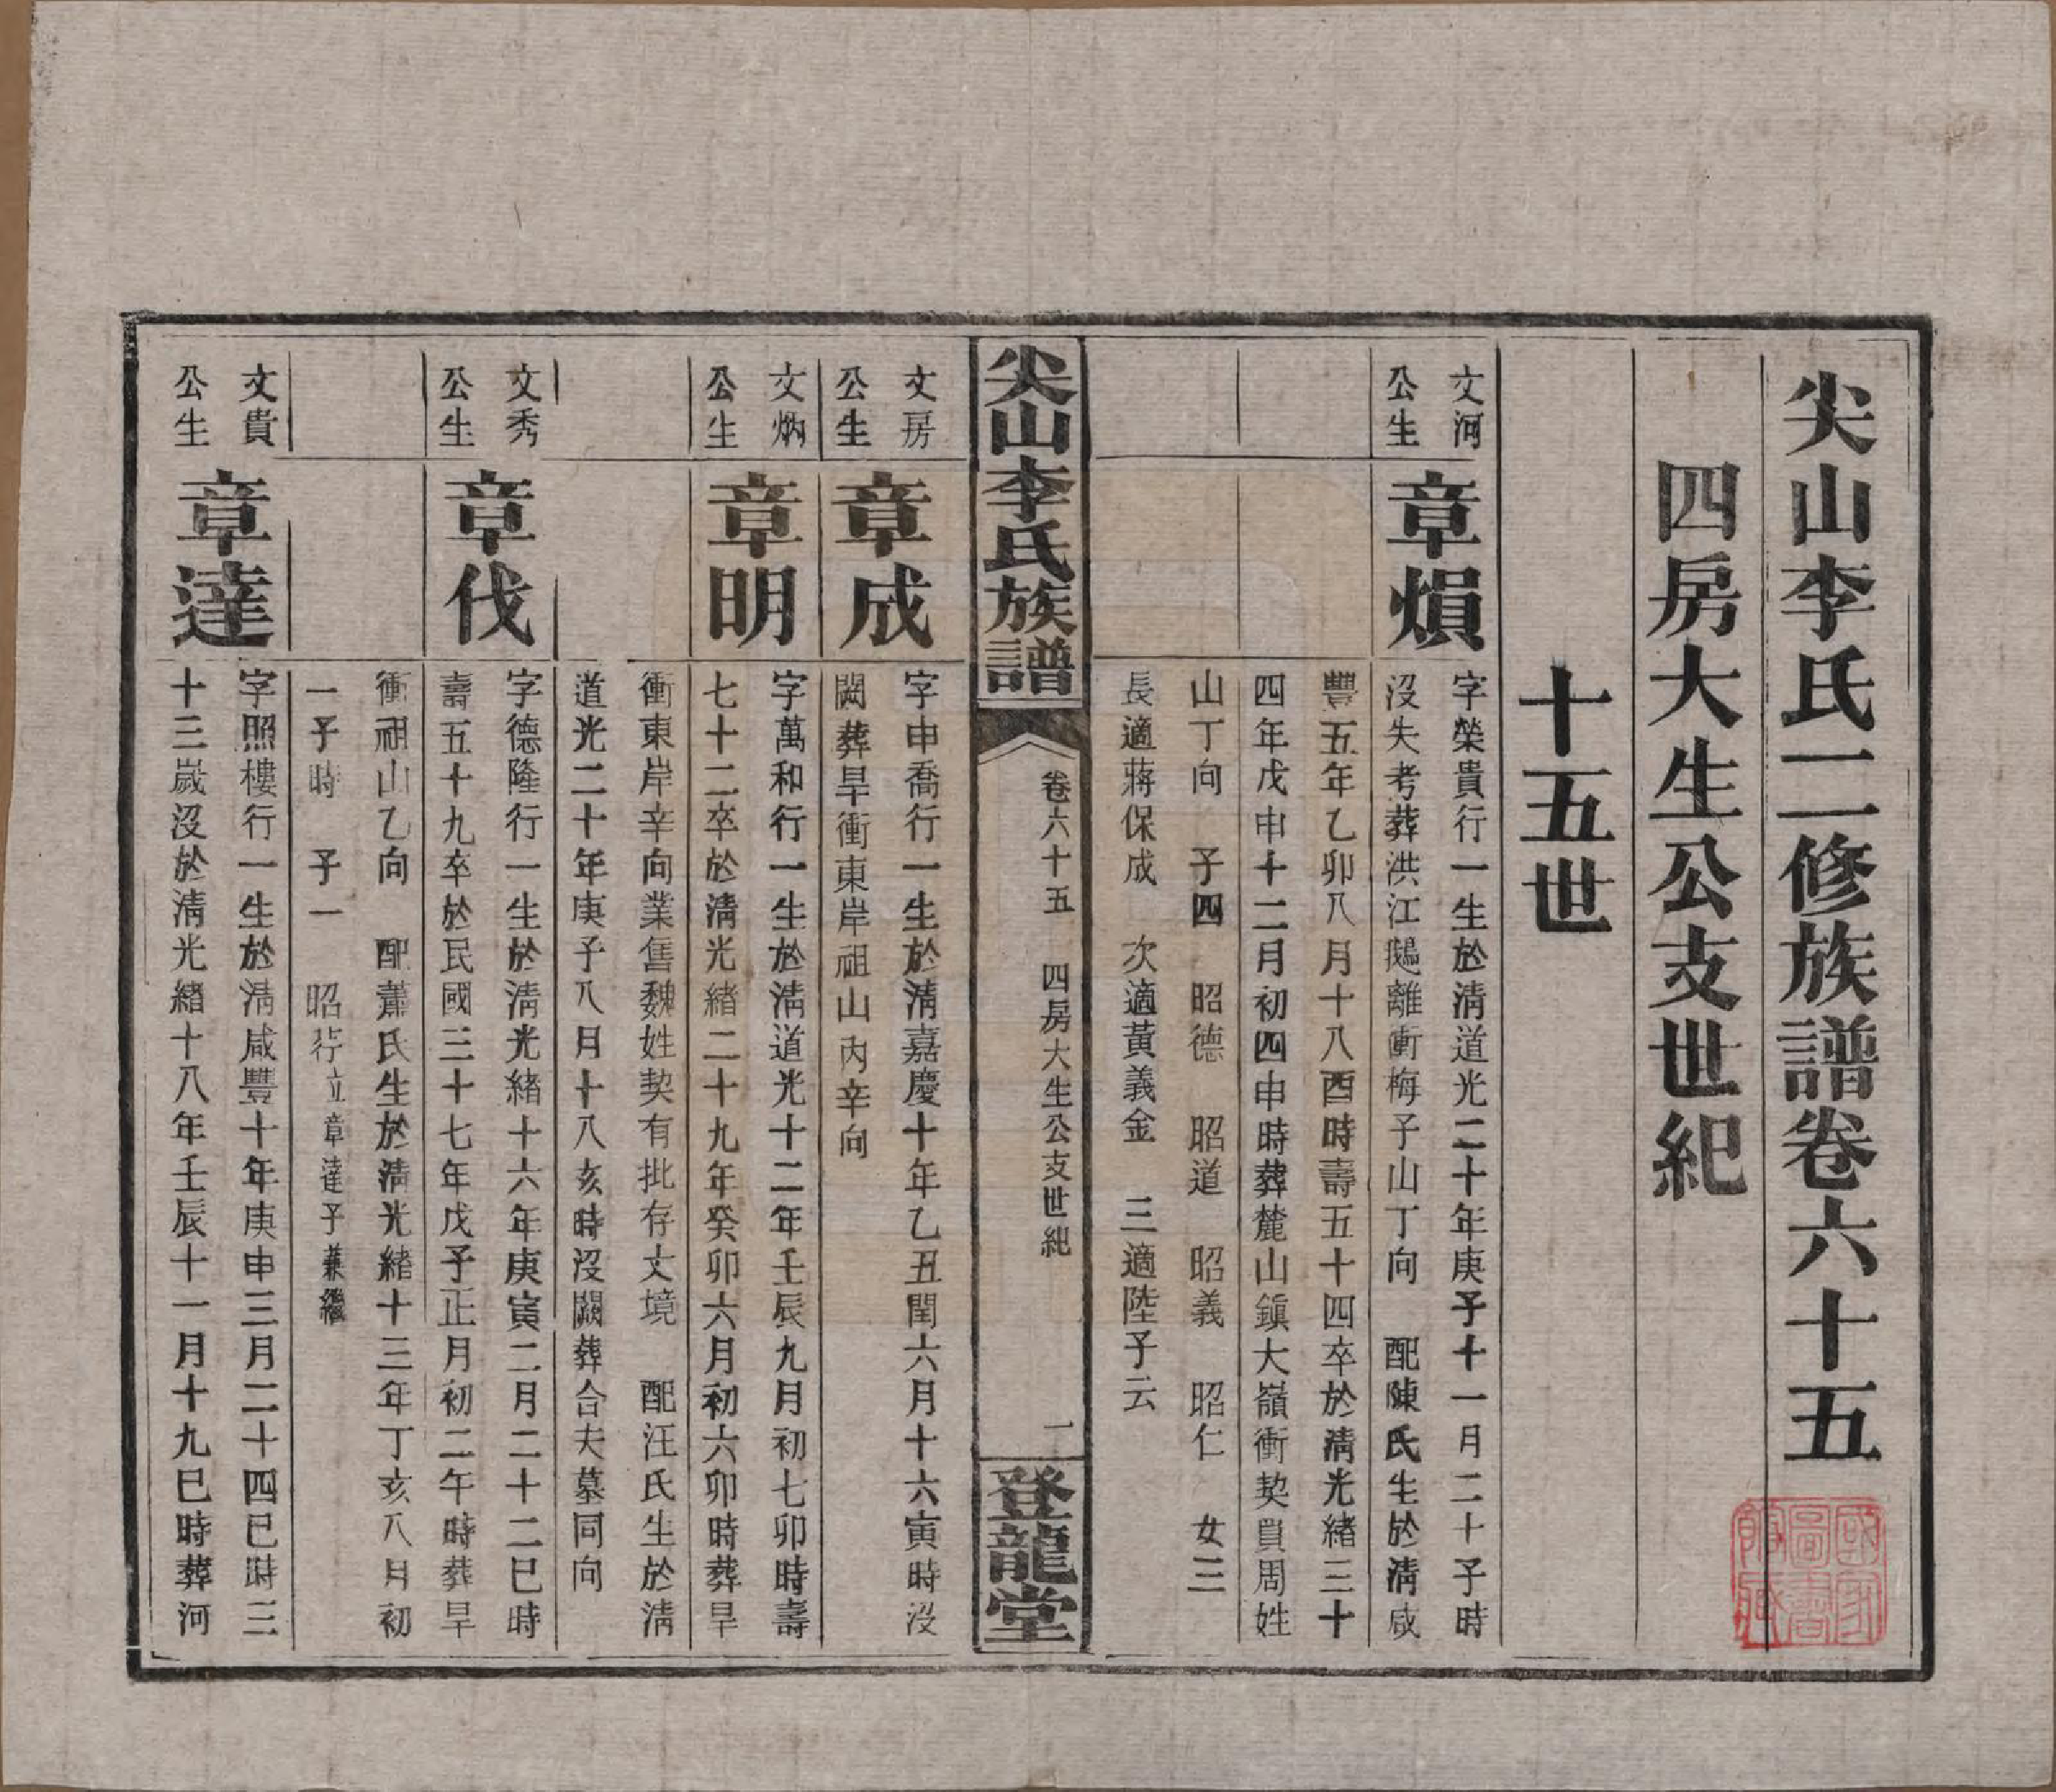 尖山李氏二修族譜卷六十五
四房大生公支世紀
十五世
文河
公生
章熉
字榮貴行一生於淸道光二十年庚子十一月二十子時
沒失考葬洪江鵝離衝梅子山丁向　配陳氏生於淸咸
豐五年乙卯八月十八酉時壽五十四卒於淸光緒三十
四年戊申十二月初四申時葬麓山鎭大嶺衝契買周姓
山丁向　子四　昭德　昭道　昭義　昭仁　女三
長適蔣保成　次適黃義金　三適陸予云
尖山李氏族譜
卷六十五　四房大生公支世紀
一
登龍堂
文房
公生
章成
字申喬行一生於淸嘉慶十年乙丑閏六月十六寅時沒
闕葬旱衝東岸祖山內辛向
文炳
公生
章明
字萬和行一生於淸道光十二年壬辰九月初七卯時壽
七十二卒於淸光緒二十九年癸卯六月初六卯時葬旱
衝東岸辛向業售魏姓契有批存文境　配汪氏生於淸
道光二十年庚子八月十八亥時沒闕葬合夫墓同向
文秀
公生
章伐
字德隆行一生於淸光緒十六年庚寅二月二十二巳時
壽五十九卒於民國三十七年戊子正月初二午時葬旱
衝祖山乙向　配蕭氏生於淸光緒十三年丁亥八月初
一子時　子一　昭行立章達子兼繼
文貴
公生
章達
字照樓行一生於淸咸豐十年庚申三月二十四巳時三
十三歲沒於淸光緒十八年壬辰十一月十九巳時葬河
國家
圖書
館藏